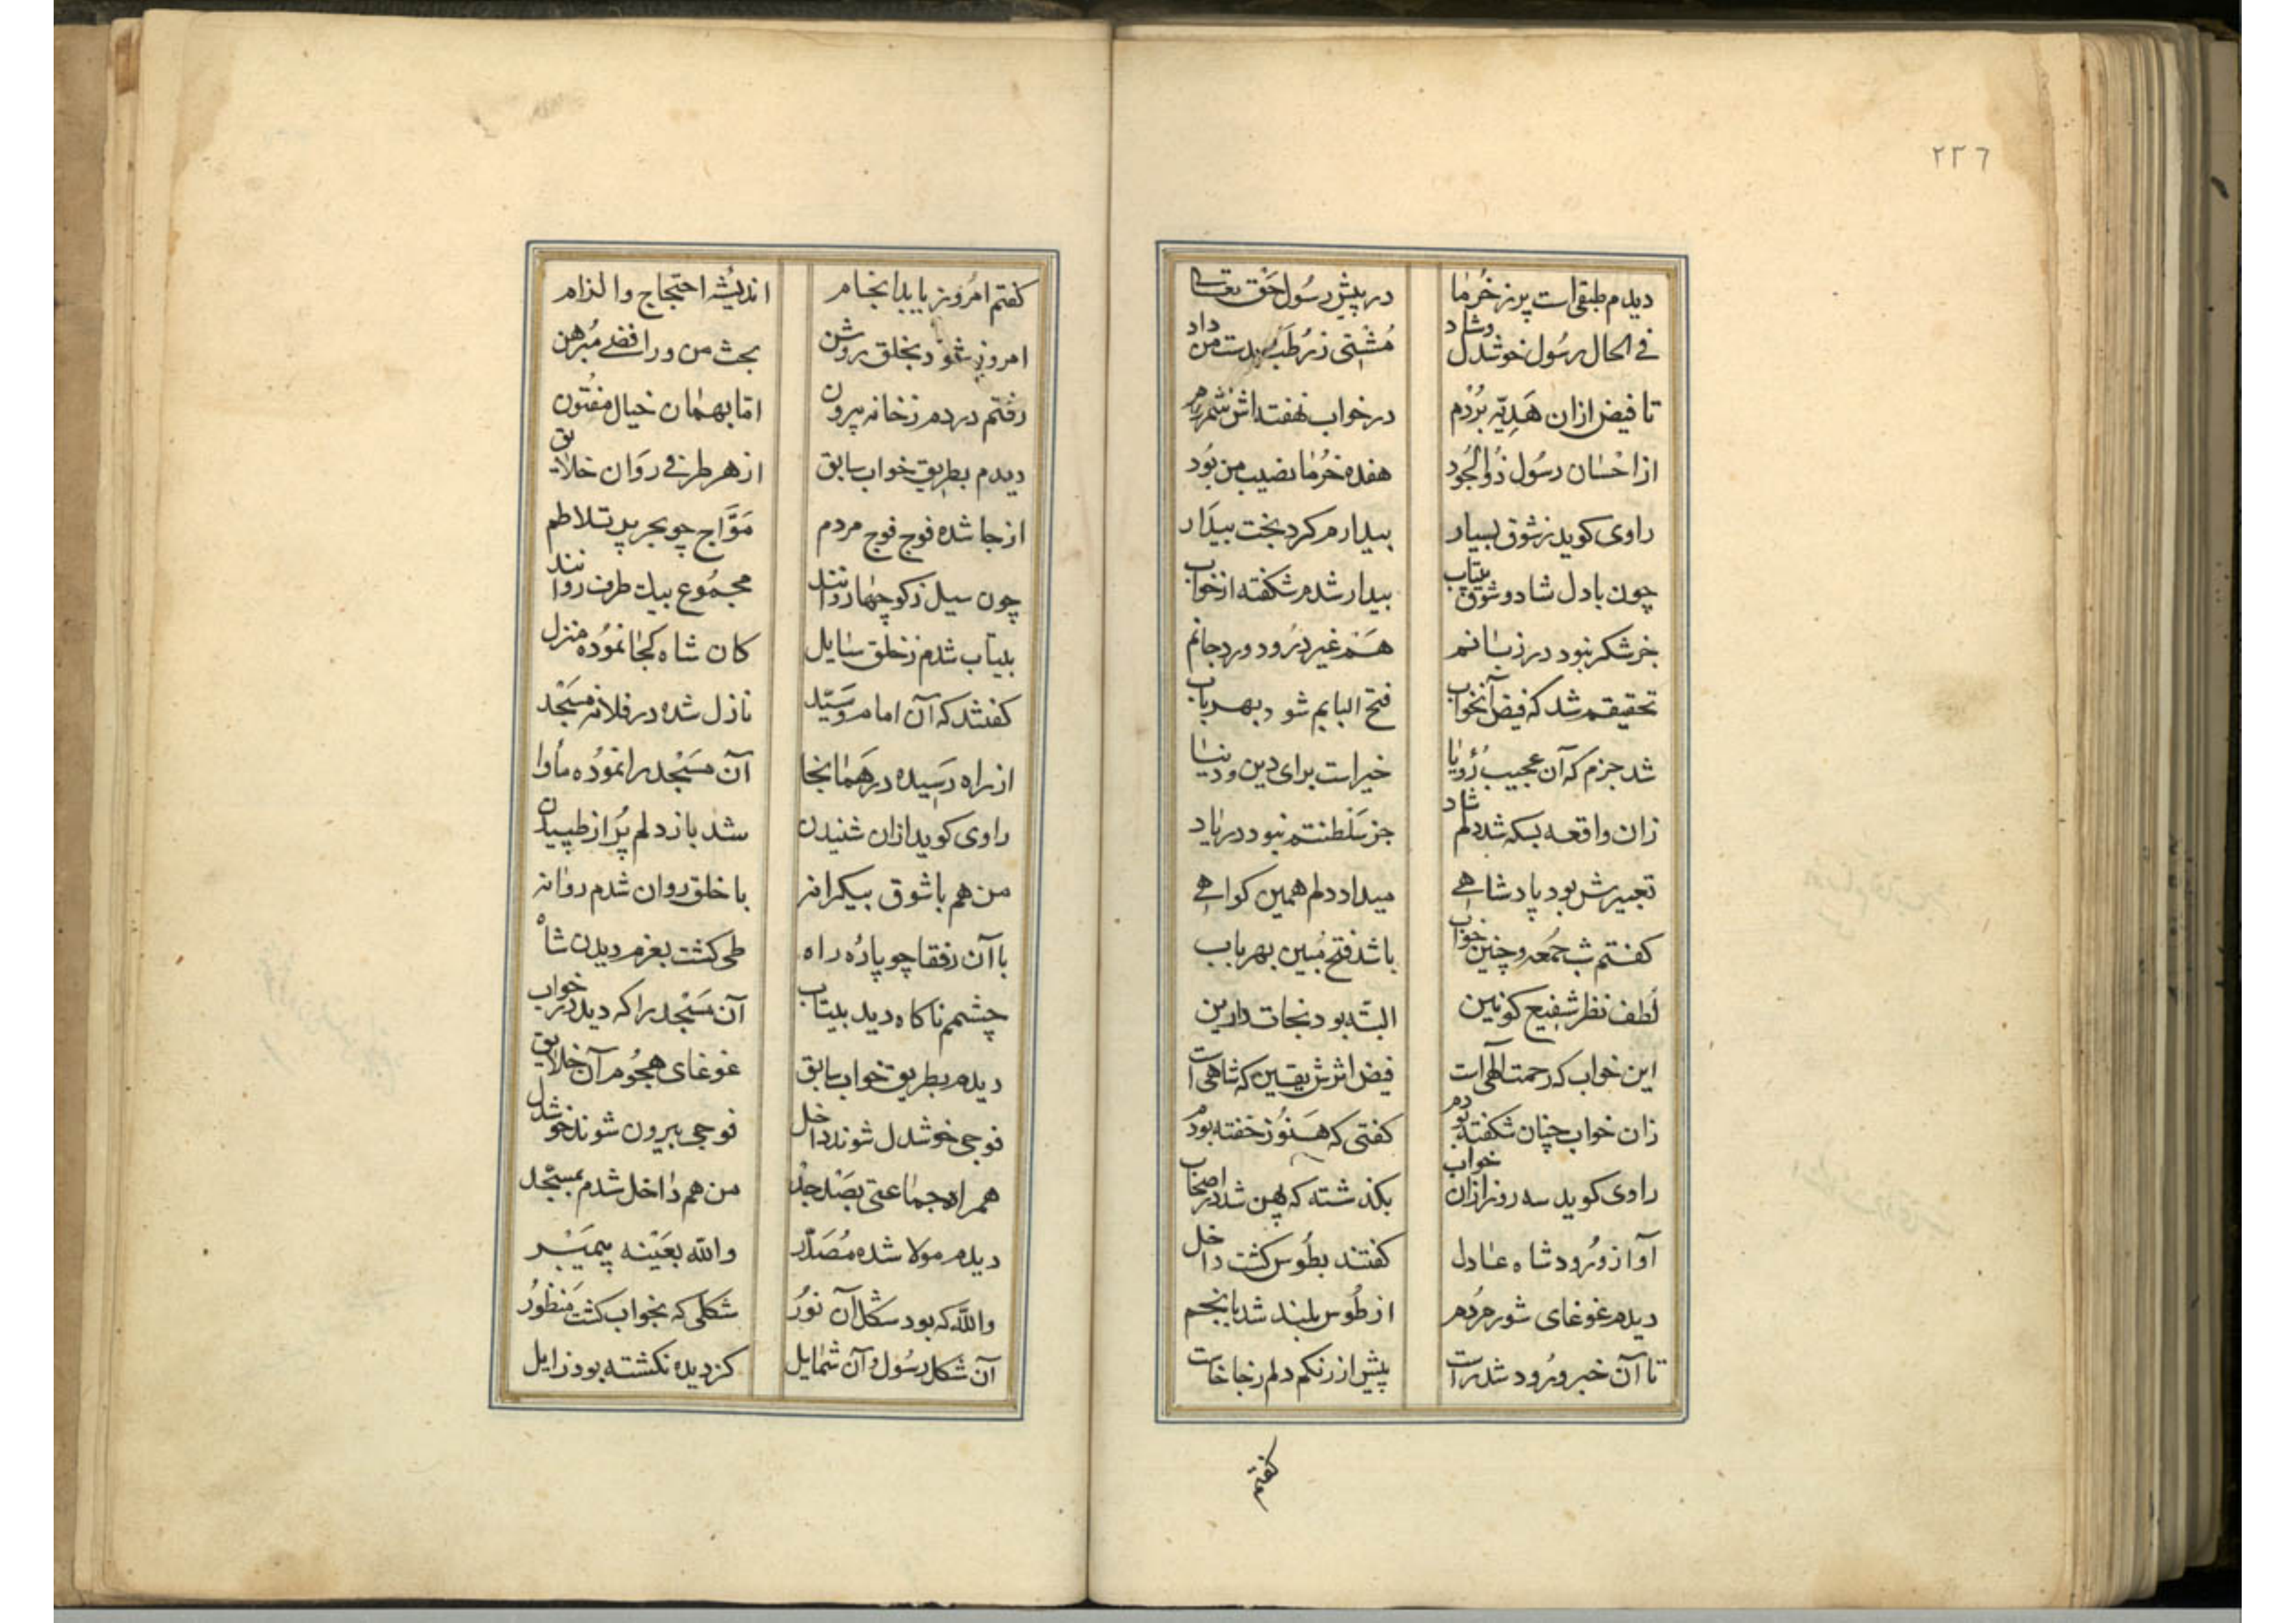 ٢٣٦
دیدم طبقی است پر ز خُرما در پیش رسُول حَق تعالی
فی الحال رسُول خوشدل وشاد مُشتی ز رُطَب بدست من داد
تا فیض ازان هَدِیّه بُرْدم در خواب نهفته اش شمردم
از احْسان رسُول ذُوالجُود هفده خُرما نصیب من بوُد
راوی کوید ز شوق بسیار بیدارم کرد بخت بیدَار
چون بادل شاد و شوق بیتاب بیدار شدم شکفته از خواب
جز شکر نبود در زبانم هَم غیر درُود ورد جانم
تحقیقم شد که فیض آنخواب فتح البابم شود بهر باب
شد جزم که آن عجیب رُؤیا خیراست برای دین و دنیا
زان واقعه بسکه شد دلم شاد جز سَلطنتم نبود در یاد
تعبیرش بود پادشاهی میداد دلم همین کواهی
کفتم شب جمُعه و چنین خواب باشد فتح مُبین بهر باب
لُطف نظر شفیع کونین البته بود نجات دارین
این خواب که رحمت آلهی است فیض اثرش یقین که شاهی است
زان خواب چنان شکفته بودم کفتی که هَنوُز خفته بودم
راوی کوید سه روز ازان خواب بکذشته که پهن شد در اصحاب
آواز ورُود شاه عادل کفتند بطُوس کشت داخل
دیدم غوغای شور مردُم از طُوس بلند شد بانجم
تا آن خبر ورُود شد راست پیش از رنکم دلم ز جا خاست
کفتم
کفتم امرُوز باید انجام اندیشه احتجاج و الزام
امروز شود بخلق روشن بحث من و رافضی مُبرهن
رفتم در دم ز خانه بیرون امّا بهمان خیال مفتُون
دیدم بطریق خواب سابق از هر طرفی روَان خلایق
از جا شده فوج فوج مردم مَوَّاج چو بحر پر تلاطم
چون سیل ز کوچها روانند مجمُوع بیک طرف روانند
بیتاب شدم ز خلق سایل کان شاه کجا نموُده منزل
کفتند که آن امام و سَیّد نازل شده در فلانه مسَجْد
از راه رَسِیده در هَمانجا آن مسَجْد را نموُده مأوا
راوی کوید ازان شنیدن شد باز دلم پُر از طپیدن
من هم با شوق بیکرانه با خلق روان شدم روانه
با آن رفقا چو پارُه راه طی کشت بعزم دیدن شاه
چشمم ناکاه دید بیتاب آن مسَجْد را که دید در خواب
دیدم بطریق خواب سابق غوغای هجُوم آن خلایق
فوجی خوشدل شوند داخل فوجی بیرون شوند خوشدل
همراه جماعتی بصَد جدّ من هم داخل شدم بمسَجْد
دیدم مولا شده مُصَدّر والله بعَیْنه پیمبَر
والله که بود شکل آن نوُر شکلی که بخواب کشت مَنظوُر
آن شکل رسُول و آن شمایل کز دیده نکشته بود زایل